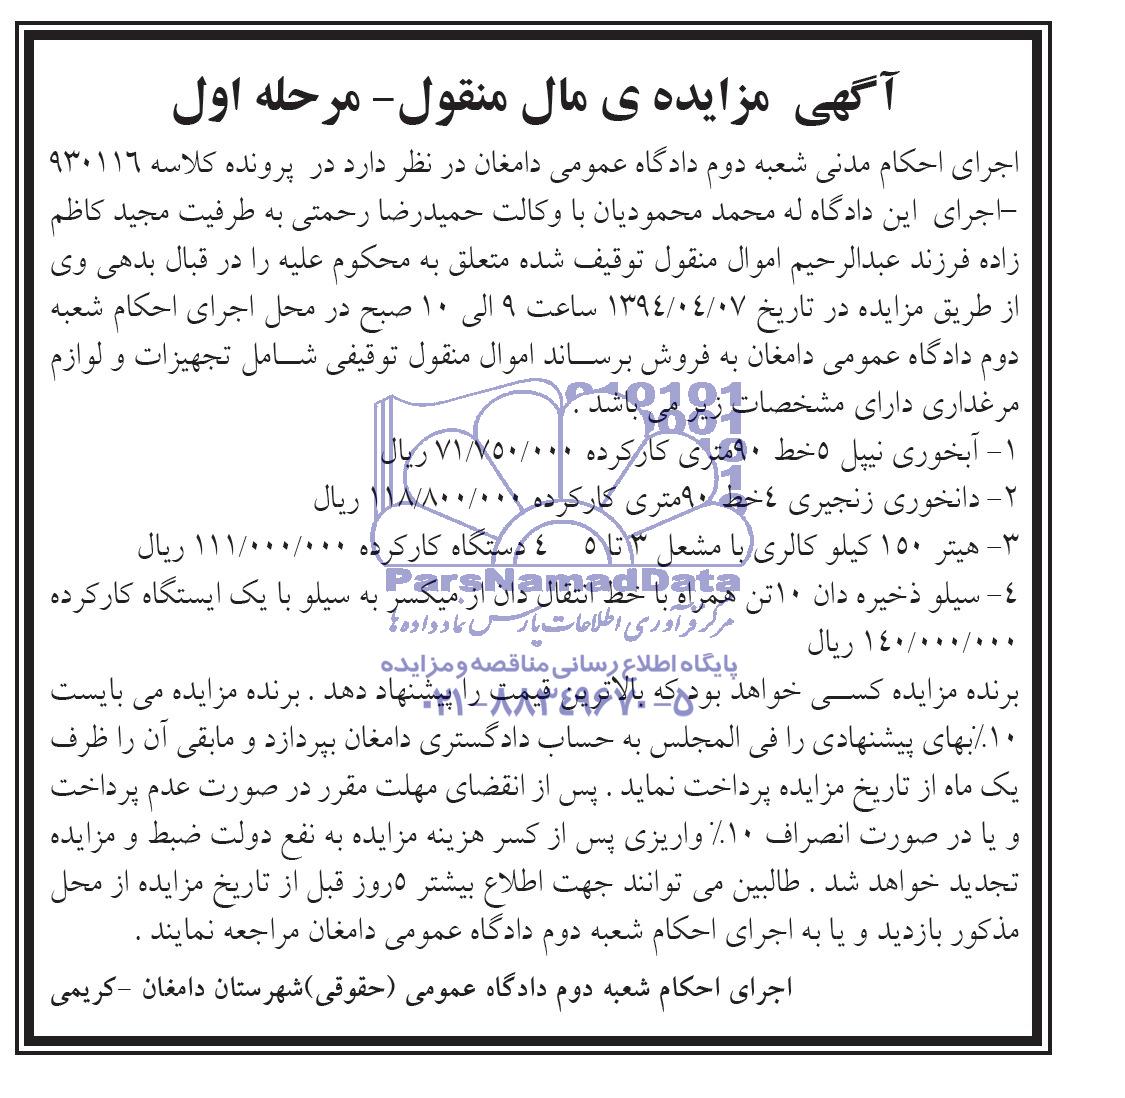 آگهی مزایده ی مال منقول- مرحله اول
اجرای احکام مدنی شعبه دوم دادگاه عمومی دامغان در نظر دارد در پرونده کلاسه ۹۳۰۱۱۶
-اجرای این دادگاه له محمد محمودیان با وکالت حمیدرضا رحمتی به طرفیت مجید کاظم
زاده فرزند عبدالرحیم اموال منقول توقیف شده متعلق به محکوم علیه را در قبال بدهی وی
از طریق مزایده در تاریخ ۱۳۹۴/۰۴/۰۷ ساعت ۹ الی ۱۰ صبح در محل اجرای احکام شعبه
دوم دادگاه عمومی دامغان به فروش برساند اموال منقول توقیفی شامل تجهیزات و لوازم
مرغداری دارای مشخصات زیر می باشد .
۱- آبخوری نیپل ۵خط ۹۰متری کارکرده ۷۱/۷۵۰/۰۰۰ ریال
۲- دانخوری زنجیری ۴خط ۹۰متری کارکرده ۱۱۸/۸۰۰/۰۰۰ ریال
۳- هیتر ۱۵۰ کیلو کالری با مشعل ۳ تا ۵ ۴ دستگاه کارکرده ۱۱۱/۰۰۰/۰۰۰ ریال
۴- سیلو ذخیره دان ۱۰تن همراه با خط انتقال دان از میکسر به سیلو با یک ایستگاه کارکرده
۱۴۰/۰۰۰/۰۰۰ ریال
برنده مزایده کسی خواهد بود که بالاترین قیمت را پیشنهاد دهد . برنده مزایده می بایست
۱۰٪بهای پیشنهادی را فی المجلس به حساب دادگستری دامغان بپردازد و مابقی آن را ظرف
یک ماه از تاریخ مزایده پرداخت نماید . پس از انقضای مهلت مقرر در صورت عدم پرداخت
و یا در صورت انصراف ۱۰٪ واریزی پس از کسر هزینه مزایده به نفع دولت ضبط و مزایده
تجدید خواهد شد . طالبین می توانند جهت اطلاع بیشتر ۵روز قبل از تاریخ مزایده از محل
مذکور بازدید و یا به اجرای احکام شعبه دوم دادگاه عمومی دامغان مراجعه نمایند .
اجرای احکام شعبه دوم دادگاه عمومی (حقوقی)شهرستان دامغان -کریمی
ParsNamadData
مرکز فرآوری اطلاعات پارس نماد داده ها
پایگاه اطلاع رسانی مناقصه و مزایده
۰۲۱-۸۸۳۴۹۶۷۰-۵